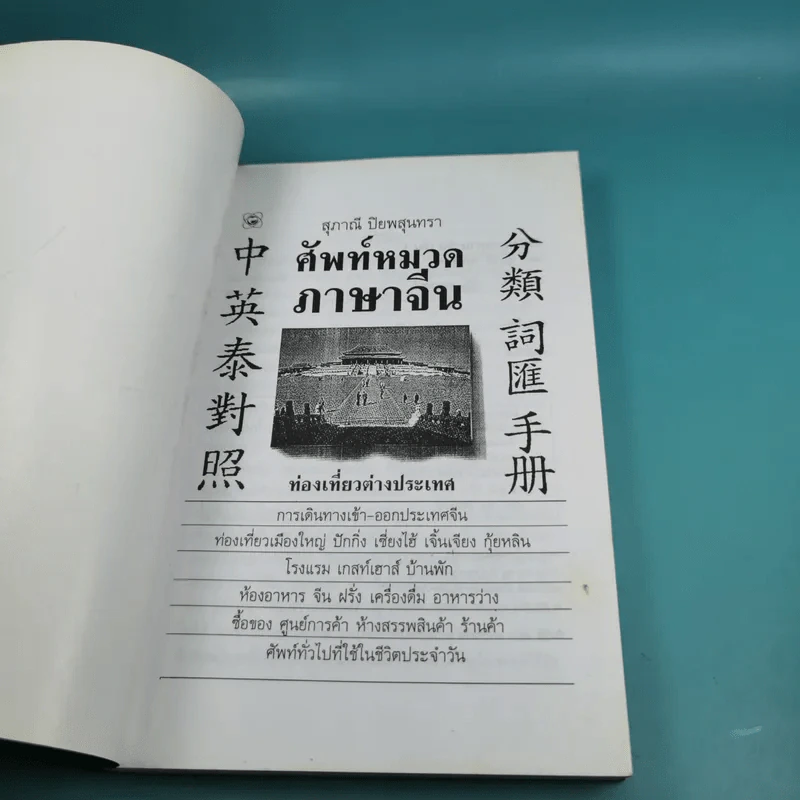 สุภาณี ปิยพสุนทรา
ศัพท์หมวด
ภาษาจีน
中英泰對照
分類詞匯手册
ท่องเที่ยวต่างประเทศ
การเดินทางเข้า-ออกประเทศจีน
ท่องเที่ยวเมืองใหญ่ ปักกิ่ง เซี่ยงไฮ้ เจิ้นเจียง กุ้ยหลิน
โรงแรม เกสท์เฮาส์ บ้านพัก
ห้องอาหาร จีน ฝรั่ง เครื่องดื่ม อาหารว่าง
ซื้อของ ศูนย์การค้า ห้างสรรพสินค้า ร้านค้า
ศัพท์ทั่วไปที่ใช้ในชีวิตประจำวัน